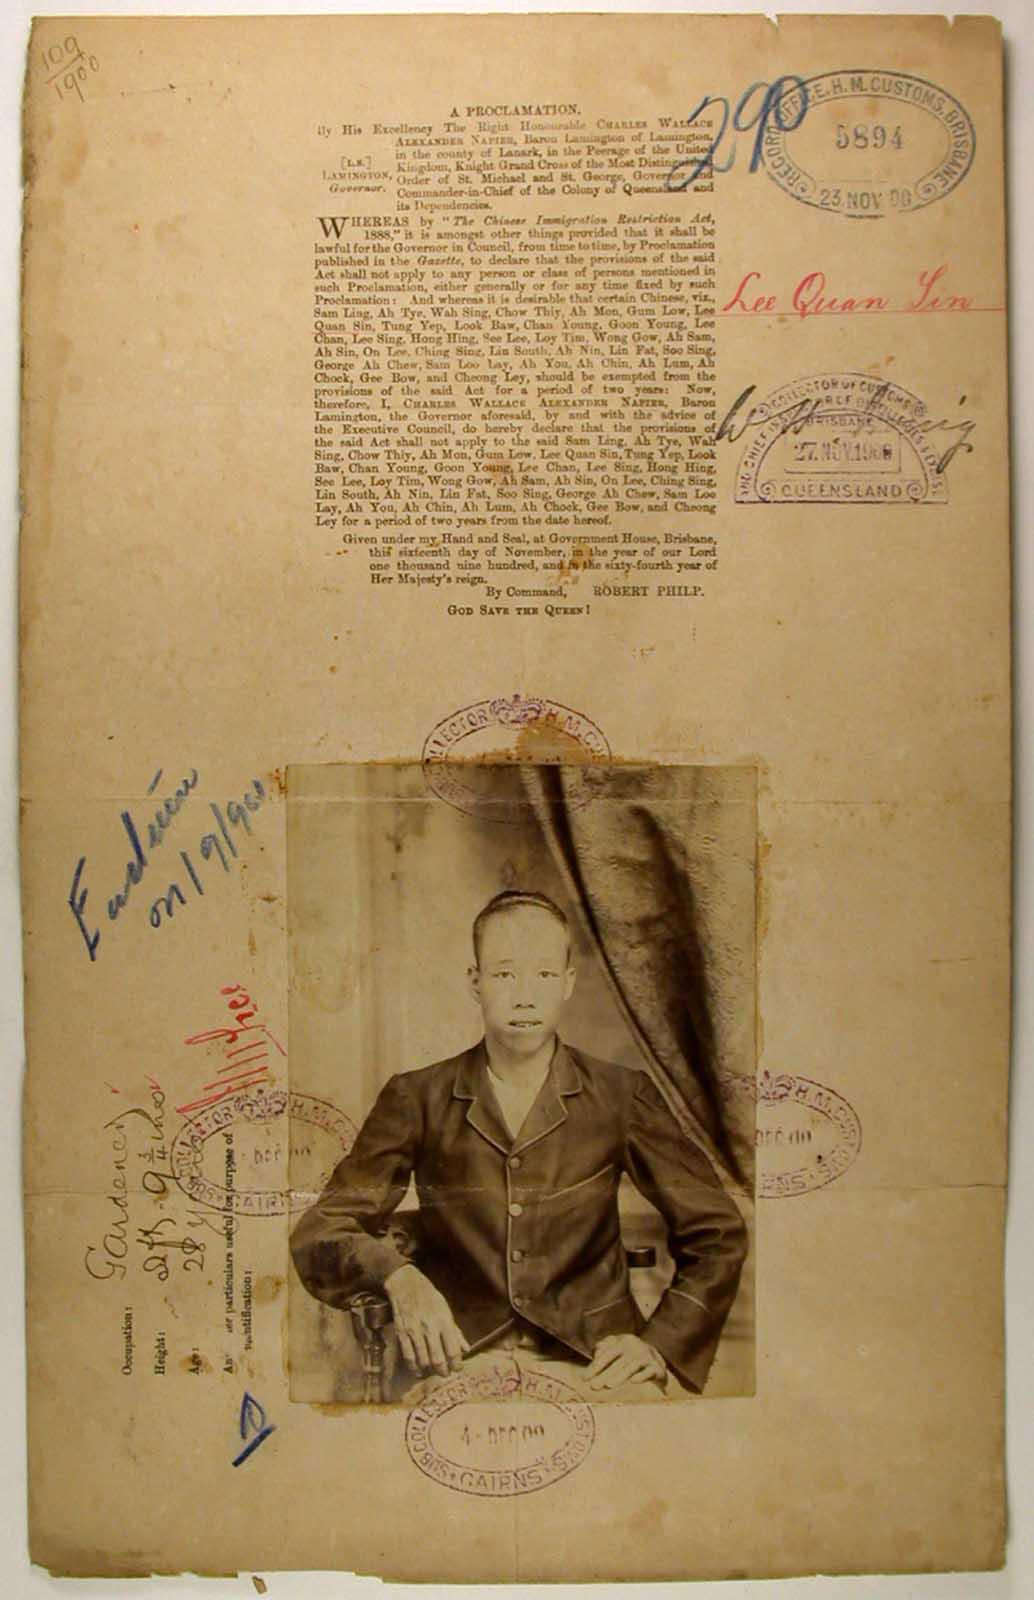 109
1900
290
RECORD OFFICE, H.M. CUSTOMS, BRISBANE
5894
23. NOV 00
A PROCLAMATION.
By His Excellency The Right Honourable CHARLES WALLACE
ALEXANDER NAPIER, Baron Lamington of Lamington,
in the county of Lanark, in the Peerage of the United
[L.S.] Kingdom, Knight Grand Cross of the Most Distinguished
LAMINGTON, Order of St. Michael and St. George, Governor and
Governor. Commander-in-Chief of the Colony of Queensland and
its Dependencies.
WHEREAS by "The Chinese Immigration Restriction Act,
1888," it is amongst other things provided that it shall be
lawful for the Governor in Council, from time to time, by Proclamation
published in the Gazette, to declare that the provisions of the said
Act shall not apply to any person or class of persons mentioned in
such Proclamation, either generally or for any time fixed by such
Proclamation: And whereas it is desirable that certain Chinese, viz.,
Sam Ling, Ah Tye, Wah Sing, Chow Thiy, Ah Mon, Gum Low, Lee
Quan Sin, Tung Yep, Look Baw, Chan Young, Goon Young, Lee
Chan, Lee Sing, Hong Hing, See Lee, Loy Tim, Wong Gow, Ah Sam,
Ah Sin, On Lee, Ching Sing, Lin South, Ah Nin, Lin Fat, Soo Sing,
George Ah Chew, Sam Loo Lay, Ah You, Ah Chin, Ah Lum, Ah
Chock, Gee Bow, and Cheong Ley, should be exempted from the
provisions of the said Act for a period of two years: Now,
therefore, I, CHARLES WALLACE ALEXANDER NAPIER, Baron
Lamington, the Governor aforesaid, by and with the advice of
the Executive Council, do hereby declare that the provisions of
the said Act shall not apply to the said Sam Ling, Ah Tye, Wah
Sing, Chow Thiy, Ah Mon, Gum Low, Lee Quan Sin, Tung Yep, Look
Baw, Chan Young, Goon Young, Lee Chan, Lee Sing, Hong Hing,
See Lee, Loy Tim, Wong Gow, Ah Sam, Ah Sin, On Lee, Ching Sing,
Lin South, Ah Nin, Lin Fat, Soo Sing, George Ah Chew, Sam Loo
Lay, Ah You, Ah Chin, Ah Lum, Ah Chock, Gee Bow, and Cheong
Ley for a period of two years from the date hereof.
Given under my Hand and Seal, at Government House, Brisbane,
this sixteenth day of November, in the year of our Lord
one thousand nine hundred, and in the sixty-fourth year of
Her Majesty's reign.
By Command, ROBERT PHILP.
GOD SAVE THE QUEEN!
Lee Quan Sin
COLLECTOR OF CUSTOMS
AND CHIEF INSPECTOR OF DISTILLERIES & EXCISE
BRISBANE
27. NOV. 1900
QUEENSLAND
COLLECTOR H.M. CUS
on 1/9/900
SUB COLLECTOR H.M. CUS
DEC 00
CAIRNS
H.M. CUSTOMS
DEC 00
RNS
Occupation: Gardener
Height: 5 ft. 9 3/4 inches
Age: 28
particulars useful for purpose of
identification:
SUB COLLECTOR H.M. CUSTOMS
4 - DEC 00
CAIRNS